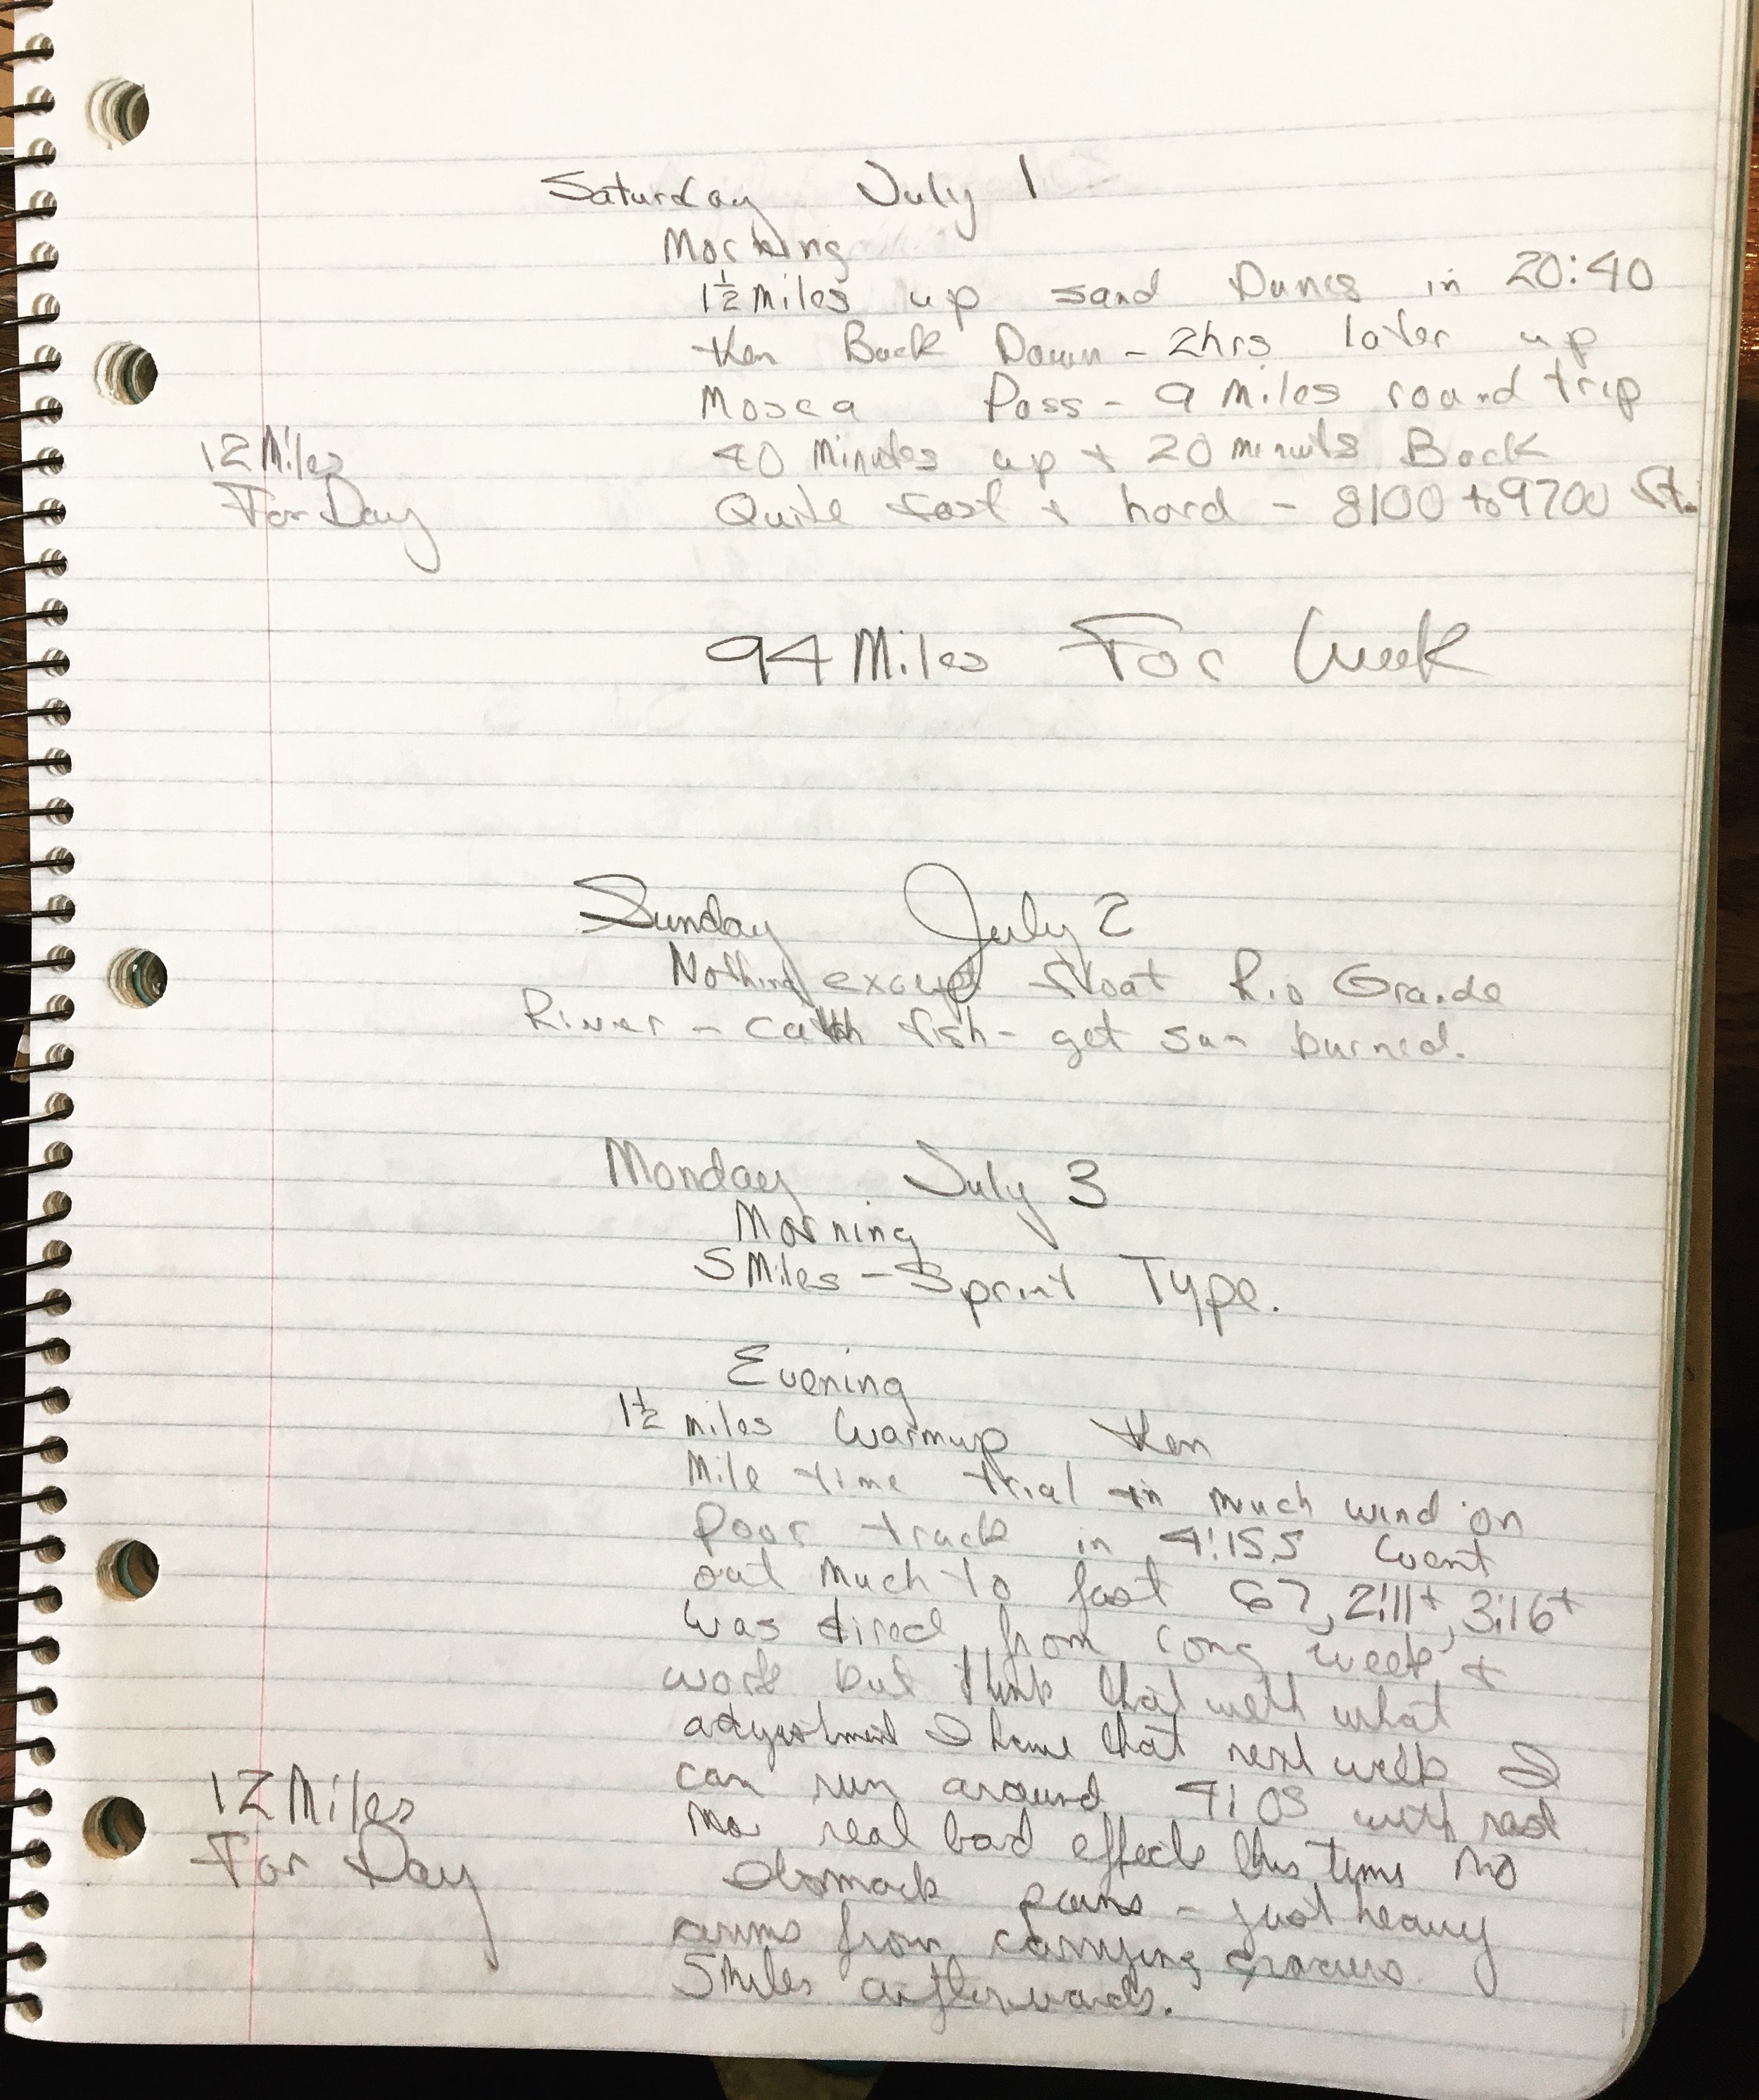 Saturday July 1
Morning
1½ Miles up sand Dunes in 20:40
then Back Down - 2hrs later up
Mosca Pass - 9 Miles round trip
40 Minutes up + 20 minuts Back
12 Miles
Quite fast + hard - 8100 to 9700 ft.
For Day
94 Miles For Week
Sunday July 2
Nothing except float Rio Grande
River - catch fish - get sun burned.
Monday July 3
Morning
5 Miles - Sprint Type.
Evening
1½ miles Warmup then
Mile time trial in much wind on
Poor track in 4:15.5 Went
out much to fast 67, 2:11+, 3:16+
Was tired from long week +
work but think that with what
adjustment I have that next week I
can run around 4:05 with rest
12 Miles
No real bad effects this time No
For Day
stomack pains - just heavy
arms from carrying
5 Miles afterwards.